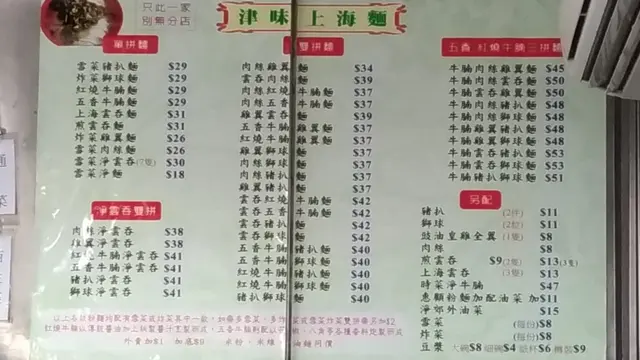 只此一家
別無分店
津味上海麵
單拼麵
雪菜豬扒麵 $29
雪菜獅球麵 $29
紅燒牛腩麵 $29
五香牛腩麵 $29
上海雲吞麵 $31
煎雲吞麵 $31
炸菜雞翼麵 $26
雪菜肉絲麵 $26
雪菜淨雲吞(7隻) $30
雪菜淨麵 $18
淨雲吞雙拼
肉絲淨雲吞 $38
雞翼淨雲吞 $38
紅燒牛腩淨雲吞 $41
五香牛腩淨雲吞 $41
豬扒淨雲吞 $41
獅球淨雲吞 $41
雙拼麵
肉絲雞翼麵 $34
雲吞肉絲麵 $39
肉絲紅燒牛腩麵 $37
肉絲五香牛腩麵 $37
雞翼雲吞麵 $39
五香牛腩雞翼麵 $37
紅燒牛腩雞翼麵 $37
雞翼獅球麵 $37
肉絲獅球麵 $37
肉絲豬扒麵 $37
雞翼豬扒麵 $37
雲吞紅燒牛腩麵 $42
雲吞五香牛腩麵 $42
雲吞豬扒麵 $42
雲吞獅球麵 $42
五香牛腩豬扒麵 $40
五香牛腩獅球麵 $40
紅燒牛腩豬扒麵 $40
紅燒牛腩獅球麵 $40
豬扒獅球麵 $40
五香 紅燒牛腩三拼麵
牛腩肉絲雞翼麵 $45
牛腩肉絲雲吞麵 $50
牛腩雲吞雞翼麵 $50
牛腩肉絲豬扒麵 $48
牛腩肉絲獅球麵 $48
牛腩雞翼豬扒麵 $48
牛腩雞翼獅球麵 $48
牛腩雲吞豬扒麵 $53
牛腩雲吞獅球麵 $53
牛腩豬扒獅球麵 $51
另配
豬扒 (2件) $11
獅球 $11
豉油皇雞全翼 (1隻) $8
肉絲 $8
煎雲吞 $9 $13(3隻)
上海雲吞 $13
時菜淨牛腩 $47
惠顧粉麵加配油菜 加$11
淨郊外油菜 $15
雪菜 (每份)$8
炸菜 (每份)$8
豆漿 大碗$8 細碗$4 紙杯$6 樽裝$9
外賣加$1 加底$9